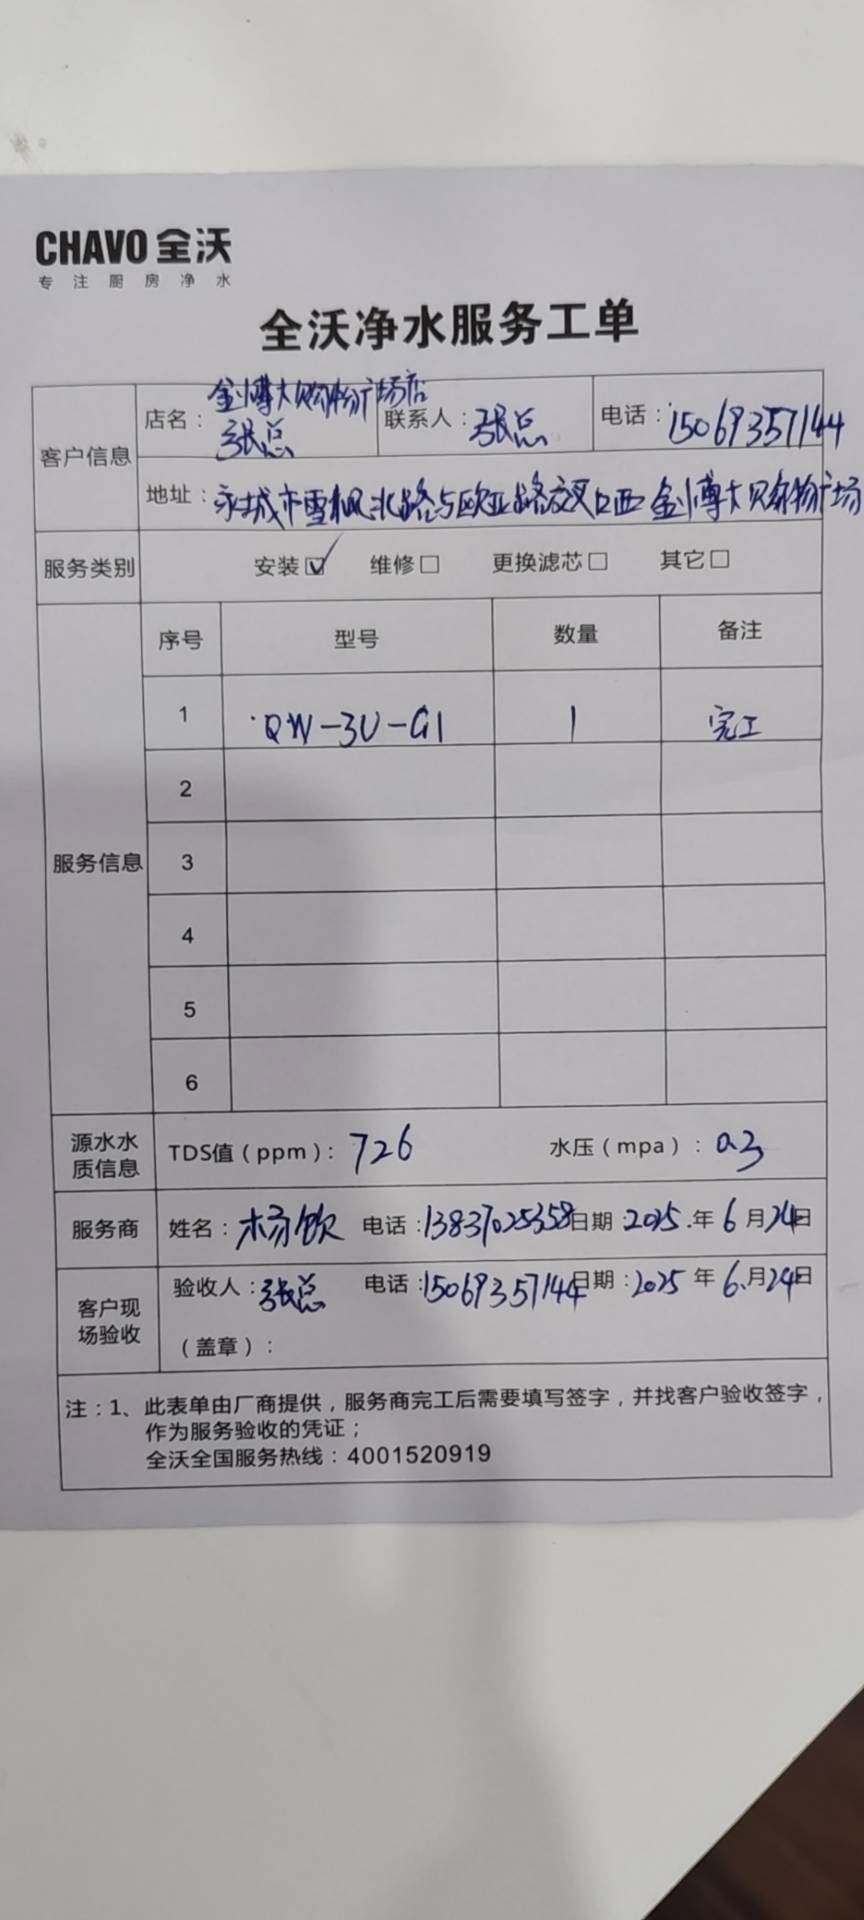 CHAVO 全沃
专注厨房净水
全沃净水服务工单
客户信息 店名：金博大购物广场店 张总 联系人：张总 电话：15069357144
地址：永城市雪枫北路与欧亚路交叉口西金博大购物广场
服务类别 安装☑ 维修□ 更换滤芯□ 其它□
服务信息 序号 型号 数量 备注
1 QW-3U-G1 1 完工
2
3
4
5
6
源水水质信息 TDS值（ppm）：726 水压（mpa）：0.3
服务商 姓名：杨饮 电话：13837025358 日期：2025.年6月24日
客户现场验收 验收人：张总 电话：15069357144 日期：2025年6.月24日
（盖章）：
注：1、此表单由厂商提供，服务商完工后需要填写签字，并找客户验收签字，
作为服务验收的凭证；
全沃全国服务热线：4001520919